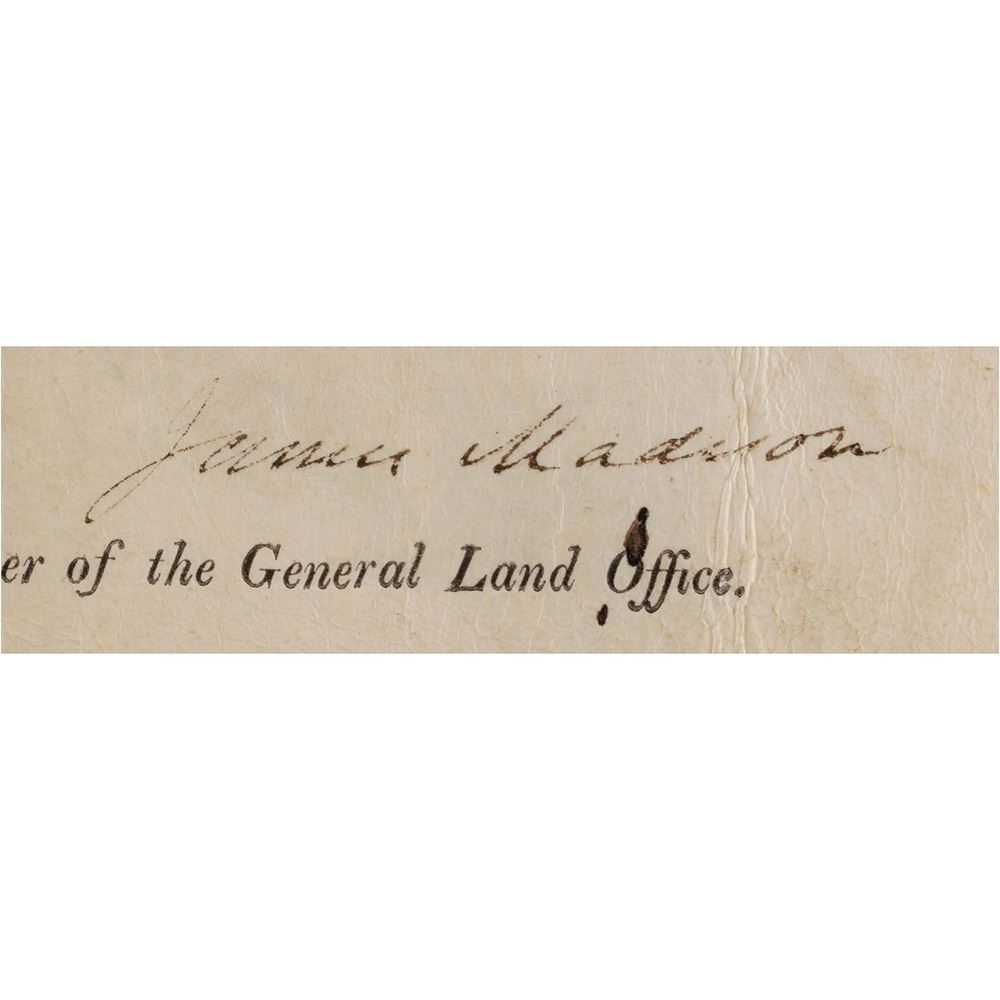 James Madison
er of the General Land Office.